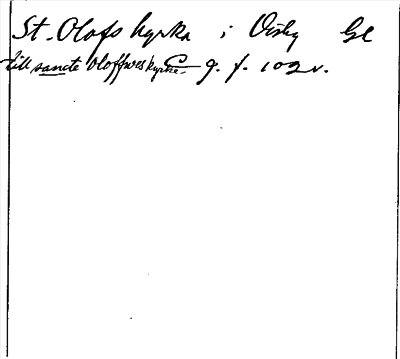 St. Olofs kyrka i Visby Gl
till sancte Oloffwes kyrke. C 9. f. 102 v.